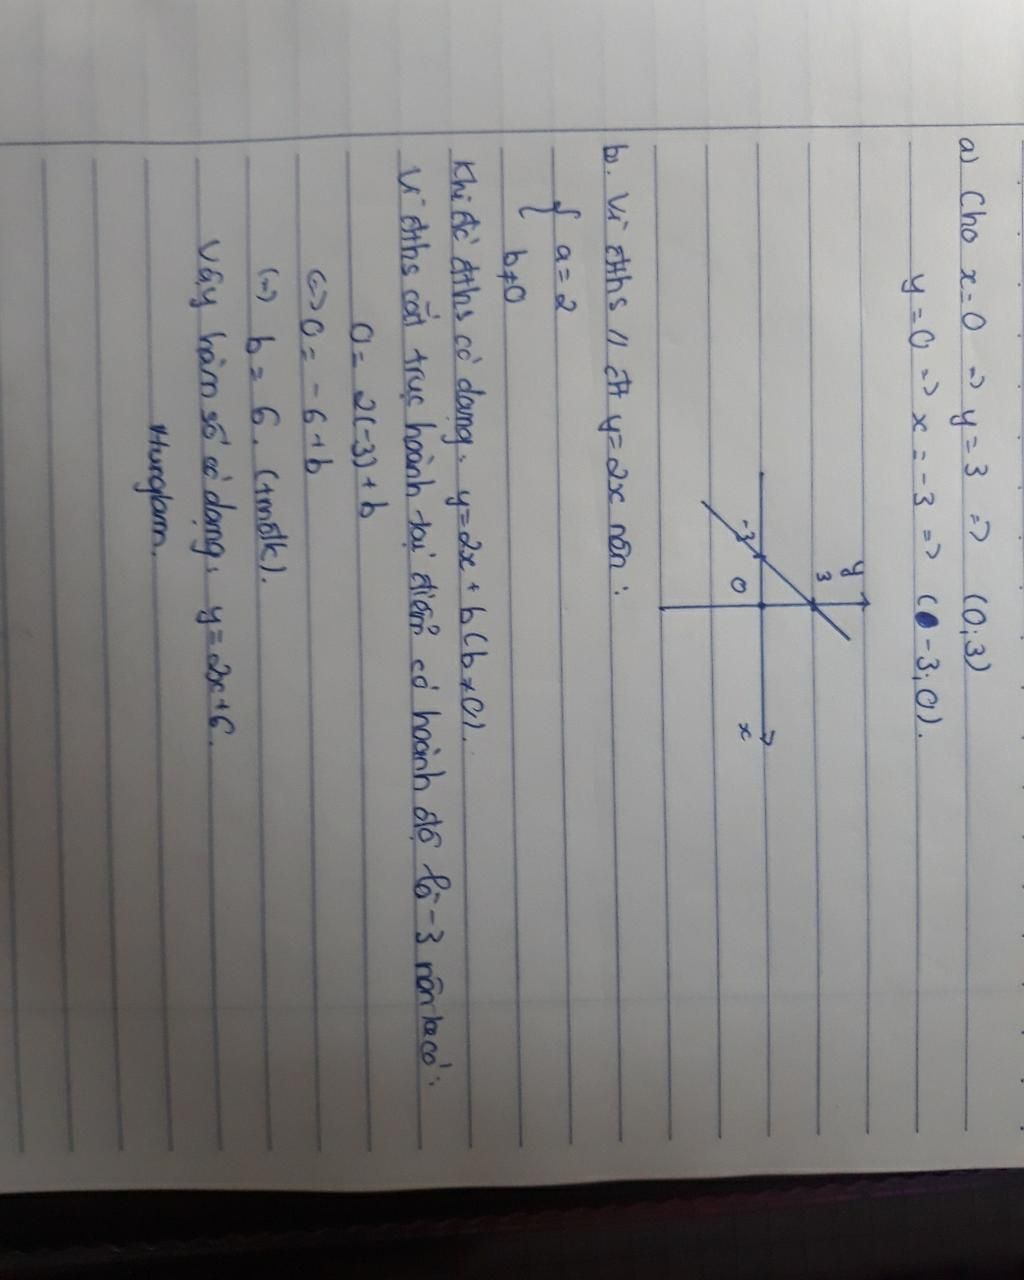 a) Cho x=0 => y=3 => (0;3)
y=0 => x=-3 => (-3;0).
y
3
-3
0
x
b. Vì đths // đt y=2x nên:
{ a=2
b≠0
Khi đó đths có dạng: y=2x+b (b≠0).
Vì đths cắt trục hoành tại điểm có hoành độ là -3 nên ta có:
0 = 2(-3)+b
(=) 0 = -6+b
(=) b = 6. (tmđk).
Vậy hàm số có dạng: y=2x+6.
Hunglam.